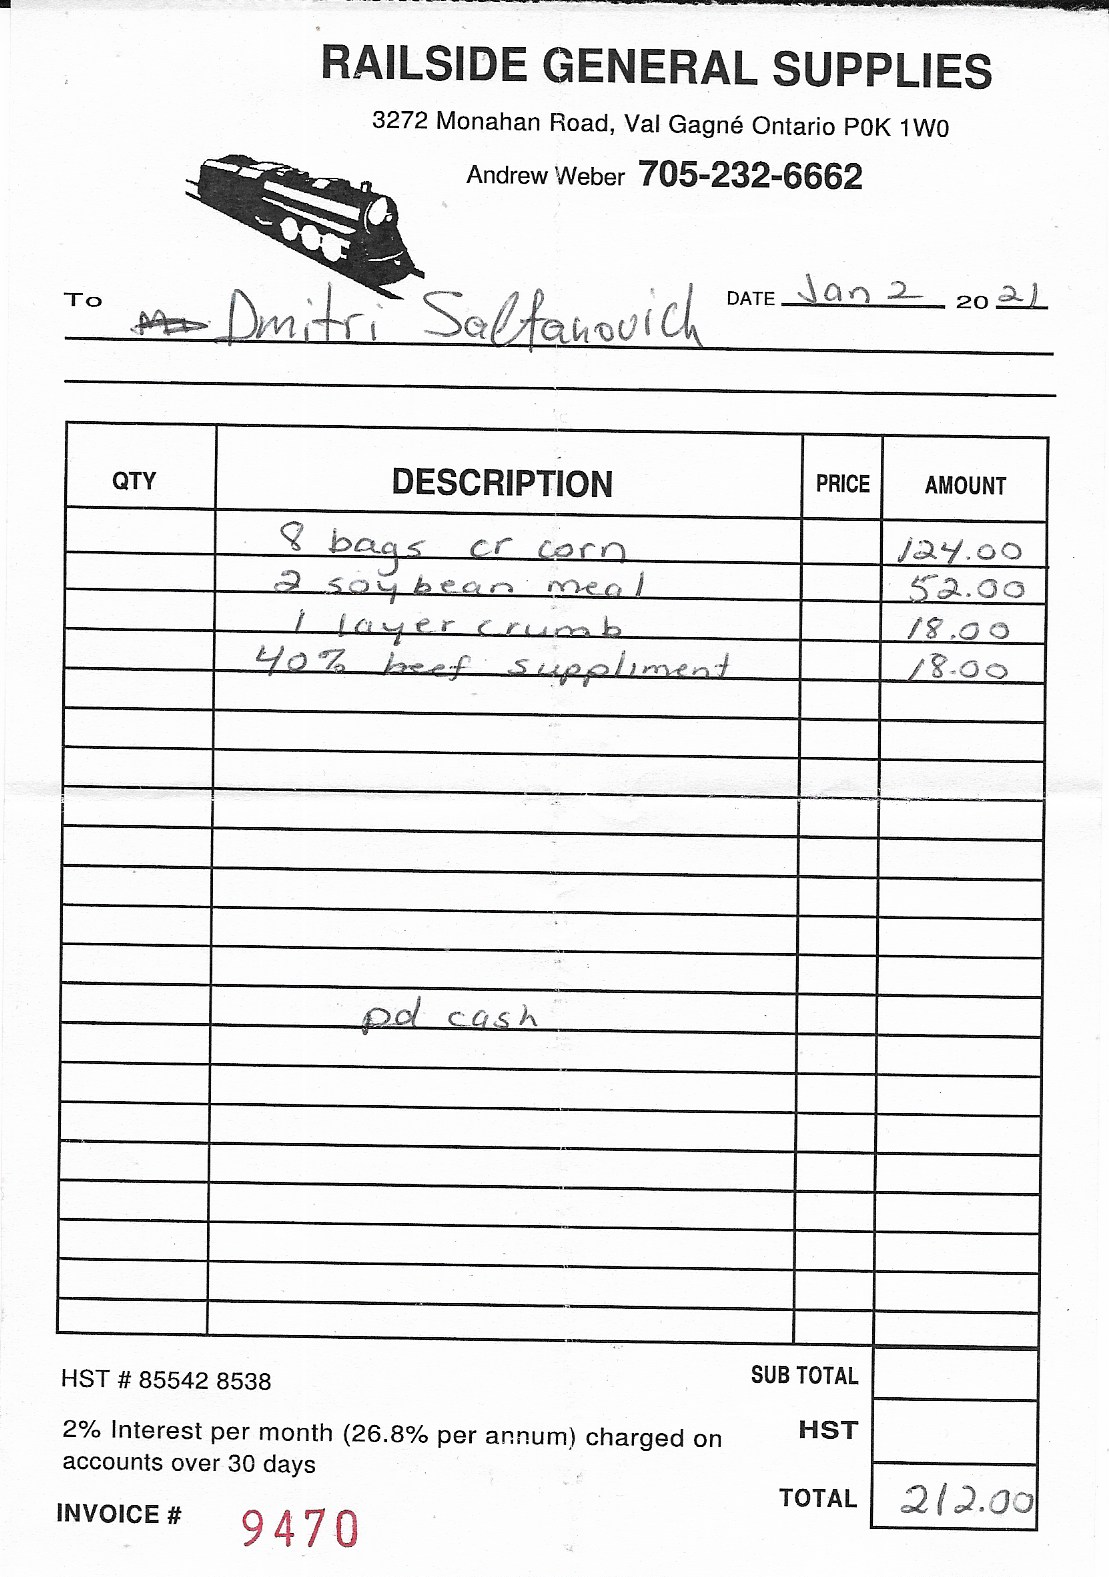 RAILSIDE GENERAL SUPPLIES
3272 Monahan Road, Val Gagné Ontario P0K 1W0
Andrew Weber 705-232-6662
To Dmitri Saltanovich
DATE Jan 2 2021
QTY DESCRIPTION PRICE AMOUNT
8 bags cr corn 124.00
2 soybean meal 52.00
1 layer crumb 18.00
40% beef suppliment 18.00
pd cash
HST # 85542 8538
SUB TOTAL
2% Interest per month (26.8% per annum) charged on
accounts over 30 days
HST
INVOICE # 9470
TOTAL 212.00